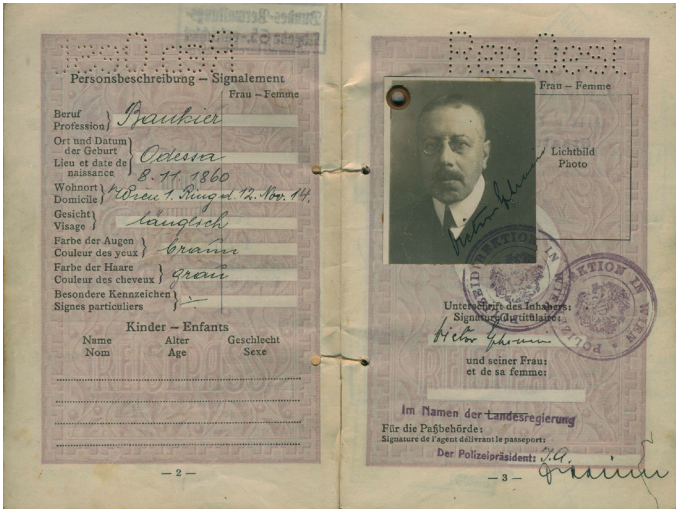 Bundes-Verwaltungs
Rep.Oest.
Personsbeschreibung – Signalement
Frau – Femme
Beruf
Profession } Bankier
Ort und Datum
der Geburt
Lieu et date de
naissance } Odessa
8. 11. 1860
Wohnort
Domicile } Wien 1. Ring d. 12. Nov. 14.
Gesicht
Visage } länglich
Farbe der Augen
Couleur des yeux } braun
Farbe der Haare
Couleur des cheveux } grau
Besondere Kennzeichen
Signes particuliers } –
Kinder – Enfants
Name Alter Geschlecht
Nom Age Sexe
— 2 —
Rep.Oest.
Frau – Femme
Lichtbild
Photo
Victor
POLIZEIDIREKTION IN WIEN
POLIZEIDIREKTION IN WIEN
Unterschrift des Inhabers:
Signature du titulaire:
Victor
und seiner Frau:
et de sa femme:
Im Namen der Landesregierung
Für die Paßbehörde:
Signature de l'agent délivrant le passeport:
Der Polizeipräsident: I.A.
— 3 —